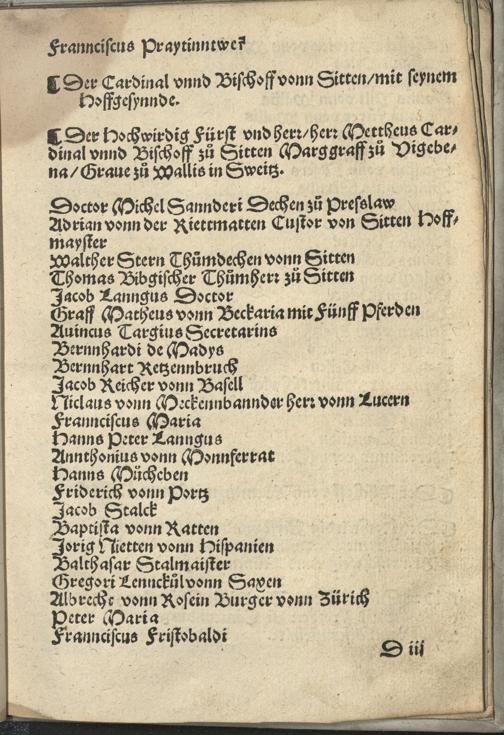 Frannciscus Praytinntwer
¶ Der Cardinal vnnd Bischoff vonn Sitten/mit seynem
Hoffgesynnde.
¶ Der Hochwirdig Fürst vnd herr/herr Mettheus Car-
dinal vnnd Bischoff zů Sitten Marggraff zů Vigebe-
na/Graue zů Wallis in Sweitz.
Doctor Michel Sannderi Dechen zů Presslaw
Adrian vonn der Riettmatten Custor von Sitten Hoff-
mayster
Walther Stern Thůmdechen vonn Sitten
Thomas Bibgischer Thůmherr zů Sitten
Jacob Lanngus Doctor
Graff Matheus vonn Beckaria mit Fünff Pferden
Auincus Targius Secretarins
Bernnhardi de Madys
Bernnhart Retzennbruch
Jacob Reicher vonn Basell
Niclaus vonn Meckennbannder herr vonn Lucern
Franciscus Maria
Hanns Peter Lanngus
Annthonius vonn Monnferrat
Hanns Mücheben
Friderich vonn Portz
Jacob Stalck
Baptista vonn Ratten
Jorig Nietten vonn Hispanien
Balthasar Stalmaister
Gregori Lennckül vonn Saxen
Albrecht vonn Rosein Burger vonn Zürich
Peter Maria
Franncisus Fristobaldi
D iij